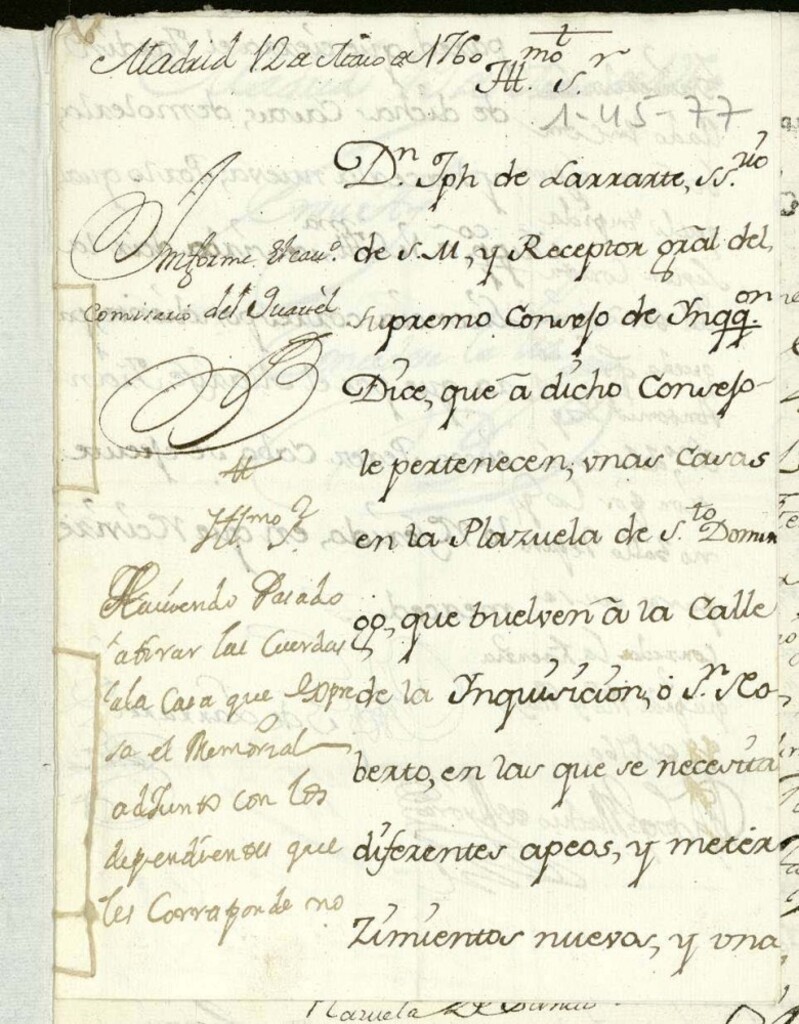 Madrid 12 de Maio de 1760
Ill.mo S.r
1-45-77
D.n Jph de Larrarte, SS.rio
de S.M, y Receptor gral del
supremo Consejo de Inqq.on
Dice, que â dicho Consejo
le pertenecen, vnas Casas
en la Plazuela de S.to Domin
go, que buelven â la Calle
de la Inquisicion, ò S.n Ro
berto, en las que se necesita
diferentes apeos, y meter
zimientos nuevos, y vna
Informe el cav.o
Comisario del Quartel
Ill.mo S.r
Haviendo Pasado
atirar las Cuerdas
ala Casa que Expre
sa el Memorial
adjunto con los
dependientes que
les Corresponde no